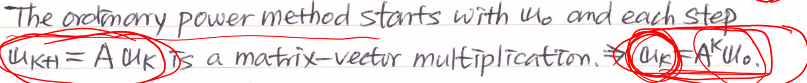 The ordinary power method starts with u₀ and each step
u_{k+1} = A u_k is a matrix-vector multiplication. ⇒ u_k = A^k u₀.